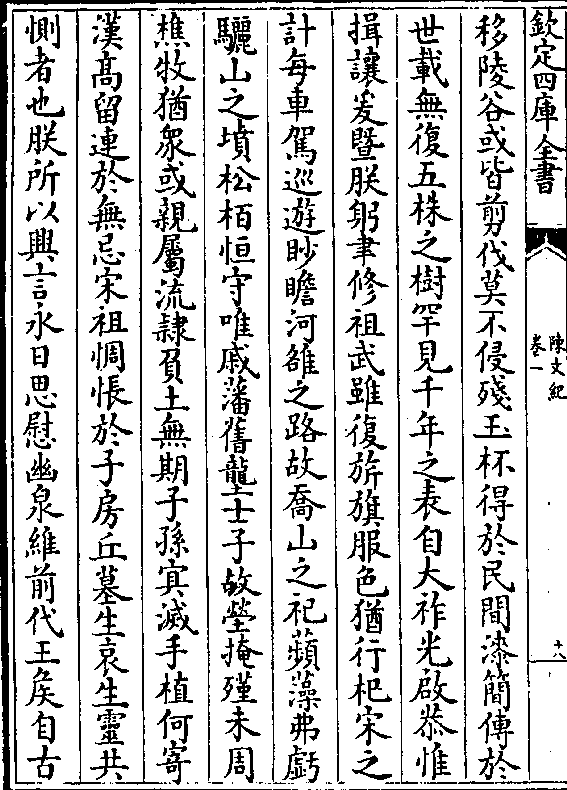 欽定四庫全書
陳文紀
卷一
十八
移陵谷或皆剪伐莫不侵殘玉杯得於民間漆簡傳於
世載無復五株之樹罕見千年之表自大祚光啟恭惟
揖讓爰暨朕躬聿修祖武雖復旂旗服色猶行杞宋之
計每車駕巡遊眇瞻河雒之路故喬山之祀蘋藻弗虧
驪山之墳松栢恒守唯戚藩舊壟士子故塋掩殣未周
樵牧猶衆或親屬流隸負土無期子孫㝠滅手植何寄
漢髙留連於無忌宋祖惆悵於子房丘墓生哀生靈共
惻者也朕所以興言永日思慰幽泉維前代王矦自古